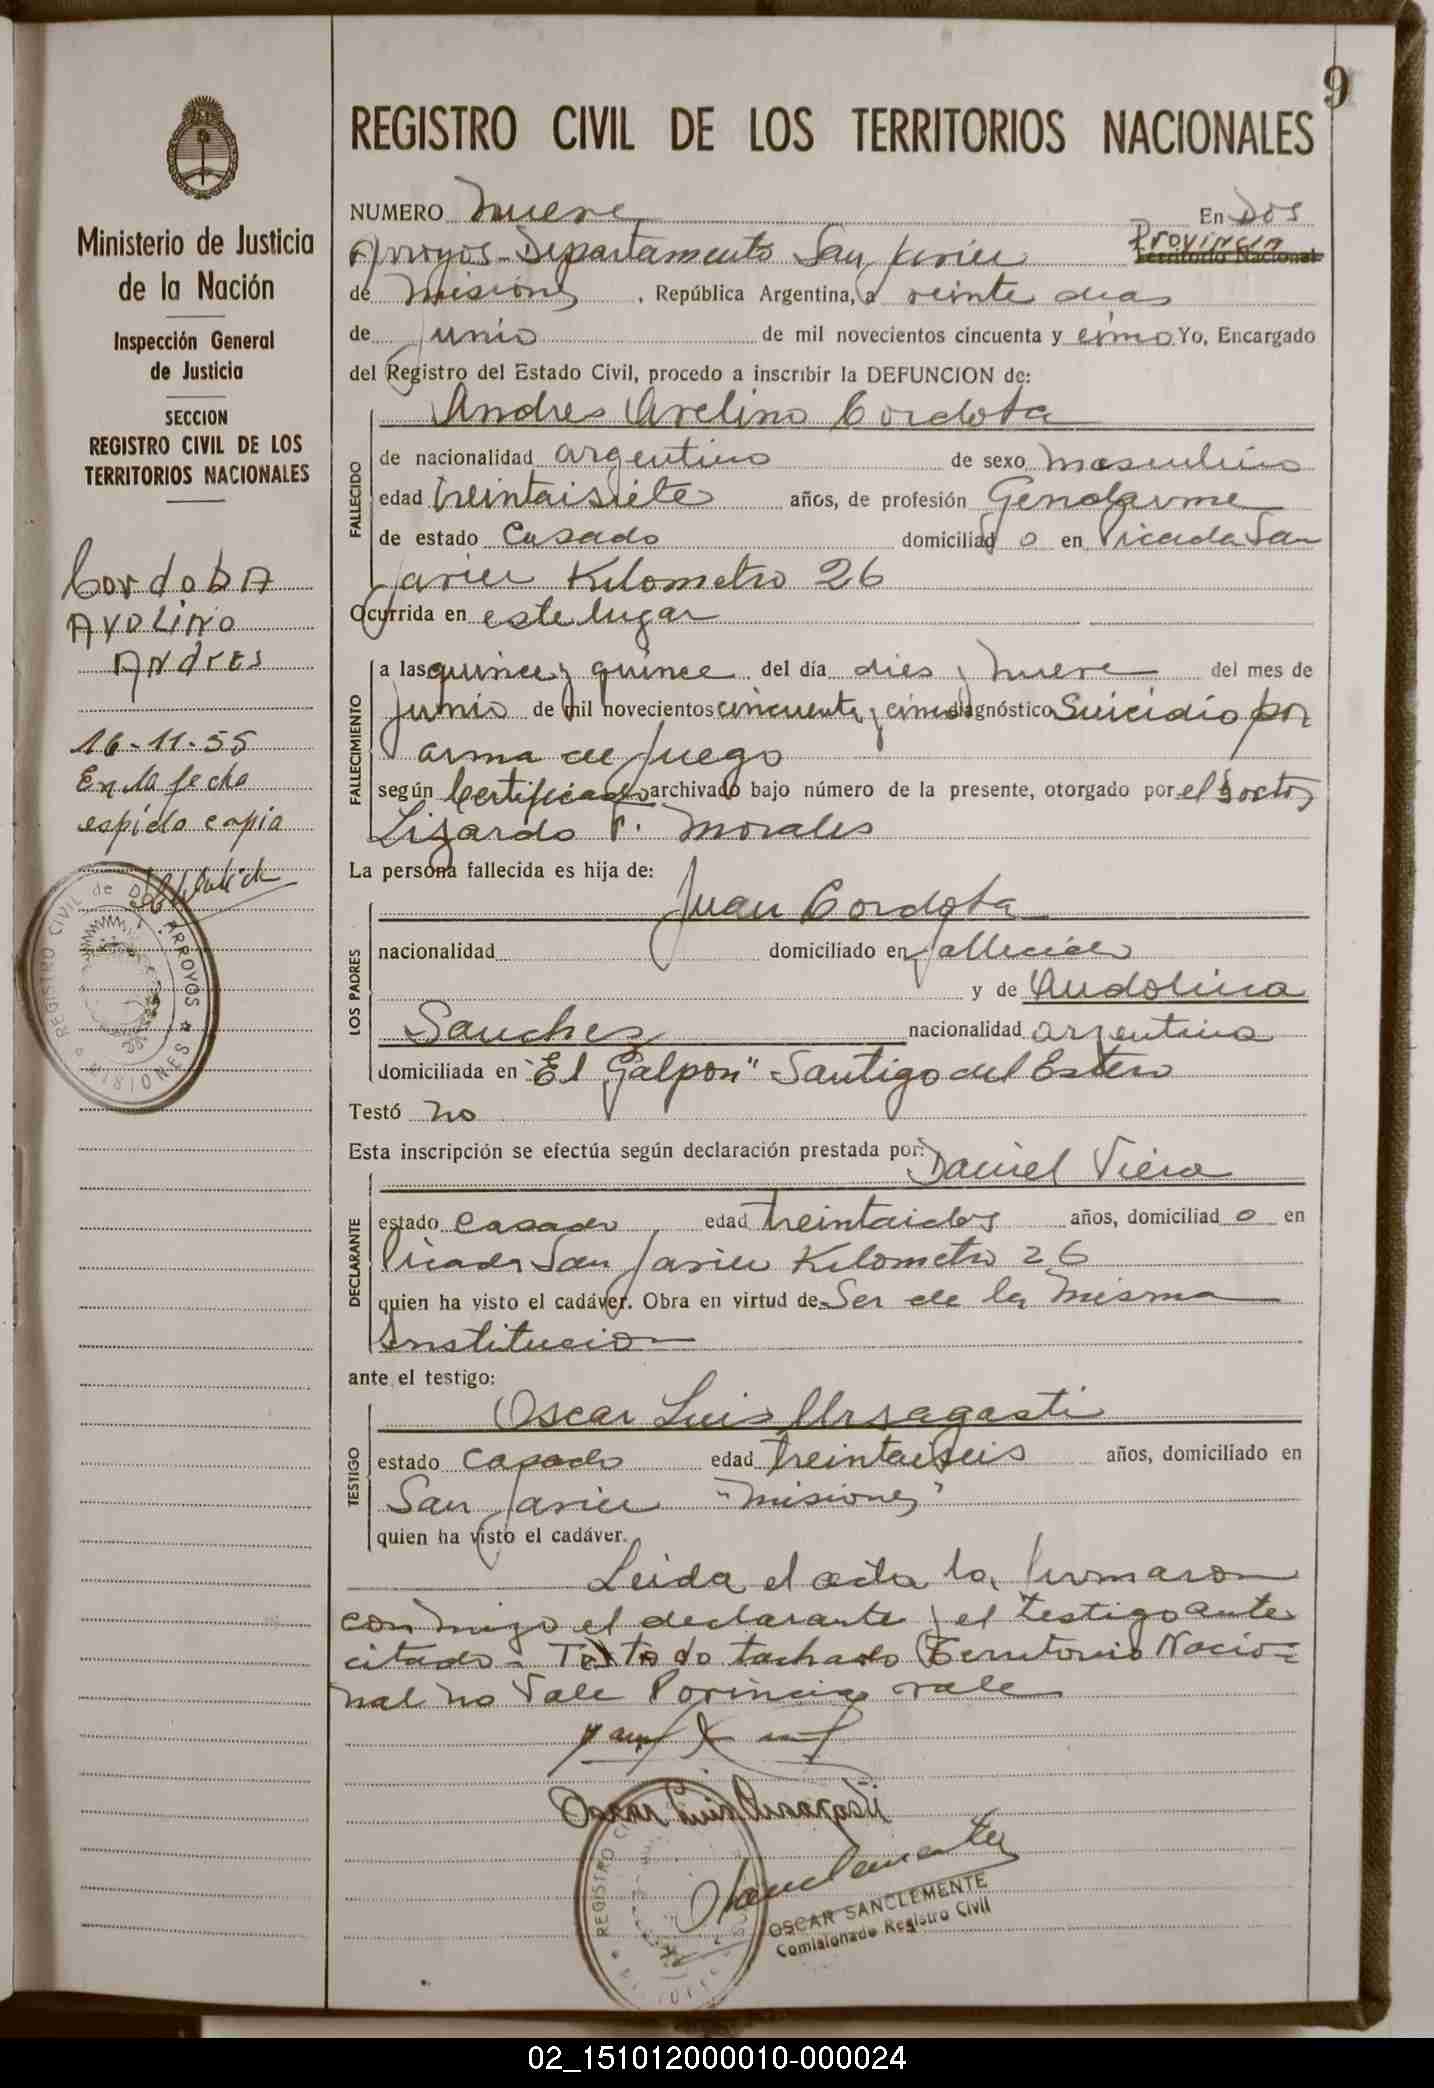 9
REGISTRO CIVIL DE LOS TERRITORIOS NACIONALES
Ministerio de Justicia
de la Nación
Inspección General
de Justicia
SECCION
REGISTRO CIVIL DE LOS
TERRITORIOS NACIONALES
CordobA
AVOLINO
ANdres
16-11-55
En la fecha
espido copia
REGISTRO CIVIL de DOS ARROYOS
MISIONES
NUMERO nueve En Dos
Arroyos - Departamento San Javier Provincia Territorio Nacional
de Misiones, República Argentina, a veinte dias
de Junio de mil novecientos cincuenta y cinco Yo, Encargado
del Registro del Estado Civil, procedo a inscribir la DEFUNCION de:
Andres Avelino Cordoba
FALLECIDO
de nacionalidad argentino de sexo masculino
edad treintaisiete años, de profesión Gendarme
de estado Casado domiciliad o en Picada San
Javier Kilometro 26
Ocurrida en este lugar
FALLECIMIENTO
a las quince y quince del día dies y nueve del mes de
Junio de mil novecientos cincuenta y cinco diagnóstico Suicidio por
arma de fuego
según Certificado archivado bajo número de la presente, otorgado por el Doctor
Lizardo F. Morales
La persona fallecida es hija de:
Juan Cordoba
LOS PADRES
nacionalidad domiciliado en fallecido
y de Andolina
Sanchez nacionalidad argentina
domiciliada en "El Galpon" Santigo del Estero
Testó no
Esta inscripción se efectúa según declaración prestada por: Daniel Viera
DECLARANTE
estado casado edad treintaidos años, domiciliad o en
Picada San Javier Kilometro 26
quien ha visto el cadáver. Obra en virtud de Ser de la misma
Institucion
ante el testigo:
Oscar Luis Ursagasti
TESTIGO
estado casado edad treintaiseis años, domiciliado en
San Javier "Misiones"
quien ha visto el cadáver.
Leida el acta la firmaron
conmigo el declarante y el testigo ante
citado - Testado tachado Territorio Nacio=
nal no Vale Porincia vale
Oscar Luis Ursagasti
Sanclemente
OSCAR SANCLEMENTE
Comisionado Registro Civil
02_151012000010-000024